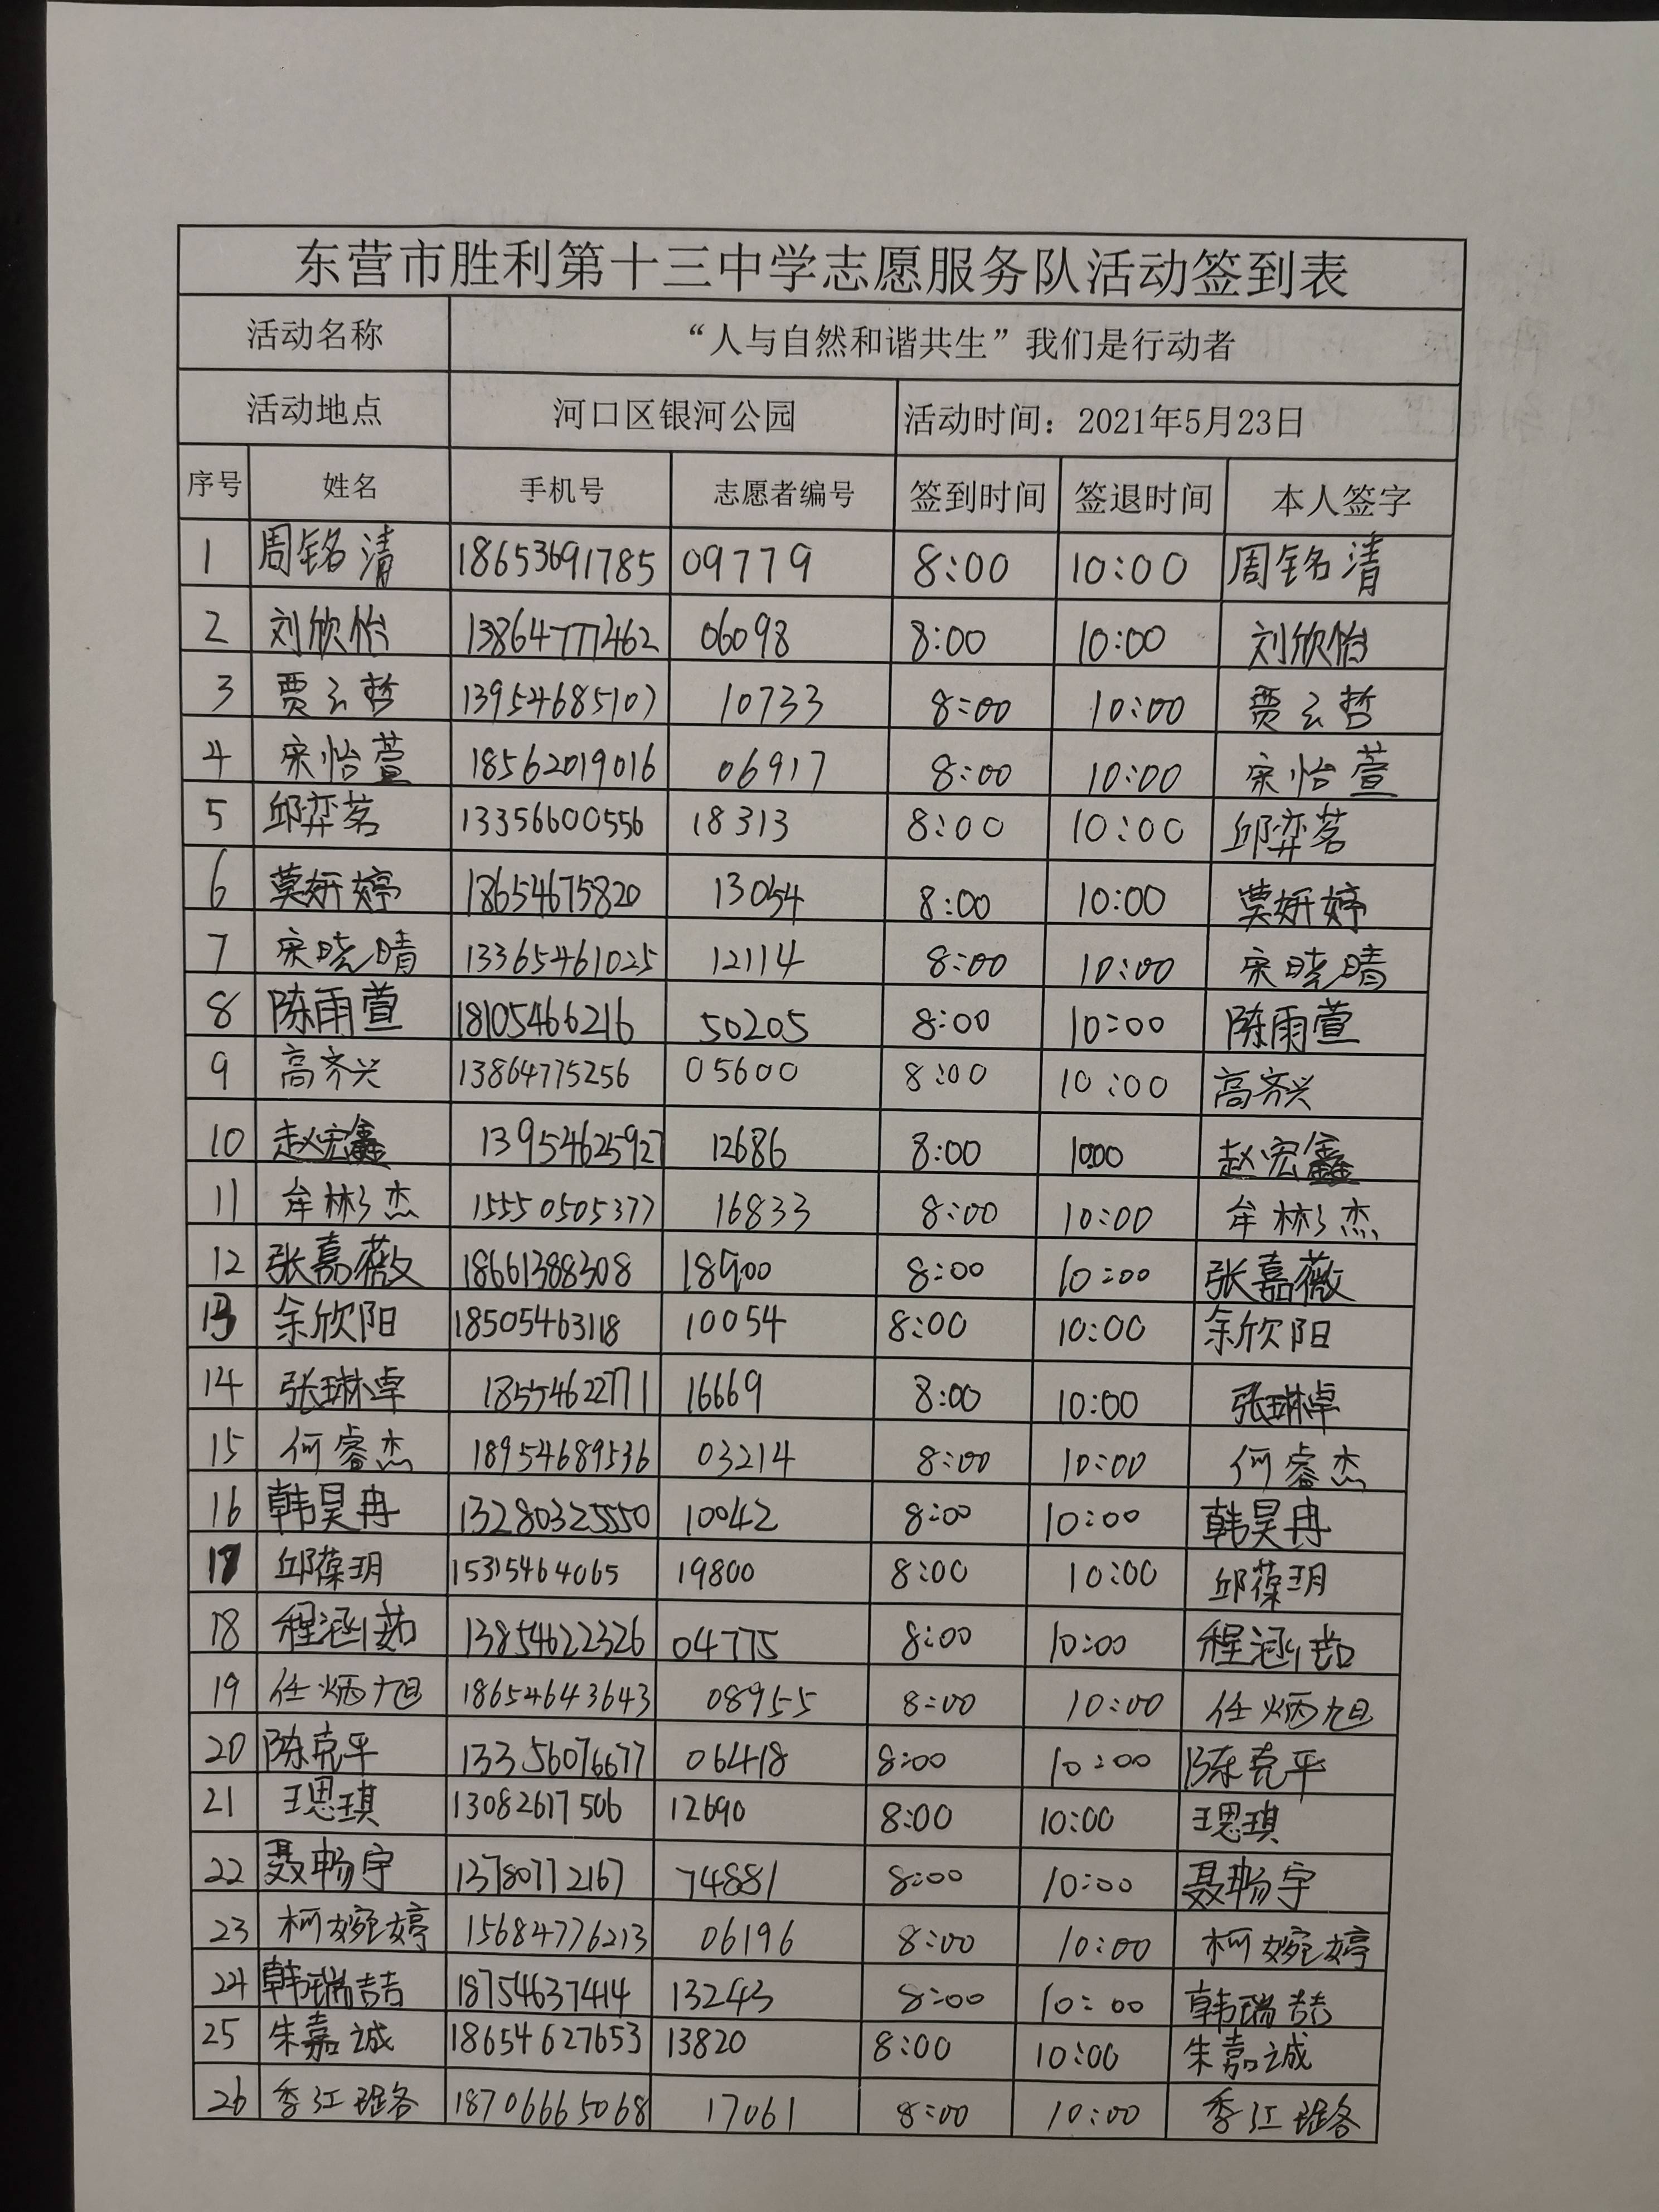 东营市胜利第十三中学志愿服务队活动签到表
活动名称 “人与自然和谐共生”我们是行动者
活动地点 河口区银河公园 活动时间：2021年5月23日
序号 姓名 手机号 志愿者编号 签到时间 签退时间 本人签字
1 周铭清 18653691785 09779 8:00 10:00 周铭清
2 刘欣怡 13864777462 06098 8:00 10:00 刘欣怡
3 贾云哲 13954685107 10733 8:00 10:00 贾云哲
4 宋怡萱 18562019016 06917 8:00 10:00 宋怡萱
5 邱弈茗 13356600556 18313 8:00 10:00 邱弈茗
6 莫妍婷 18654675820 13054 8:00 10:00 莫妍婷
7 宋晓晴 13365461025 12114 8:00 10:00 宋晓晴
8 陈雨萱 18105466216 50205 8:00 10:00 陈雨萱
9 高齐兴 13864775256 05600 8:00 10:00 高齐兴
10 赵宏鑫 13954625927 12686 8:00 10:00 赵宏鑫
11 牟彬杰 15550505377 16833 8:00 10:00 牟彬杰
12 张嘉薇 18661388308 18900 8:00 10:00 张嘉薇
13 余欣阳 18505463118 10054 8:00 10:00 余欣阳
14 张琳卓 18554622771 16669 8:00 10:00 张琳卓
15 何睿杰 18954689536 03214 8:00 10:00 何睿杰
16 韩昊冉 13280325550 10042 8:00 10:00 韩昊冉
17 邱葆玥 15315464065 19800 8:00 10:00 邱葆玥
18 程涵茹 13854622326 04775 8:00 10:00 程涵茹
19 任炳旭 18654643643 08955 8:00 10:00 任炳旭
20 陈克平 13356076677 06418 8:00 10:00 陈克平
21 王思琪 13082617506 12690 8:00 10:00 王思琪
22 聂畅宇 13780772167 74881 8:00 10:00 聂畅宇
23 柯婉婷 15684776213 06196 8:00 10:00 柯婉婷
24 韩瑞喆 18754637414 13243 8:00 10:00 韩瑞喆
25 朱嘉诚 18654627653 13820 8:00 10:00 朱嘉诚
26 季江 18706665068 17061 8:00 10:00 季江